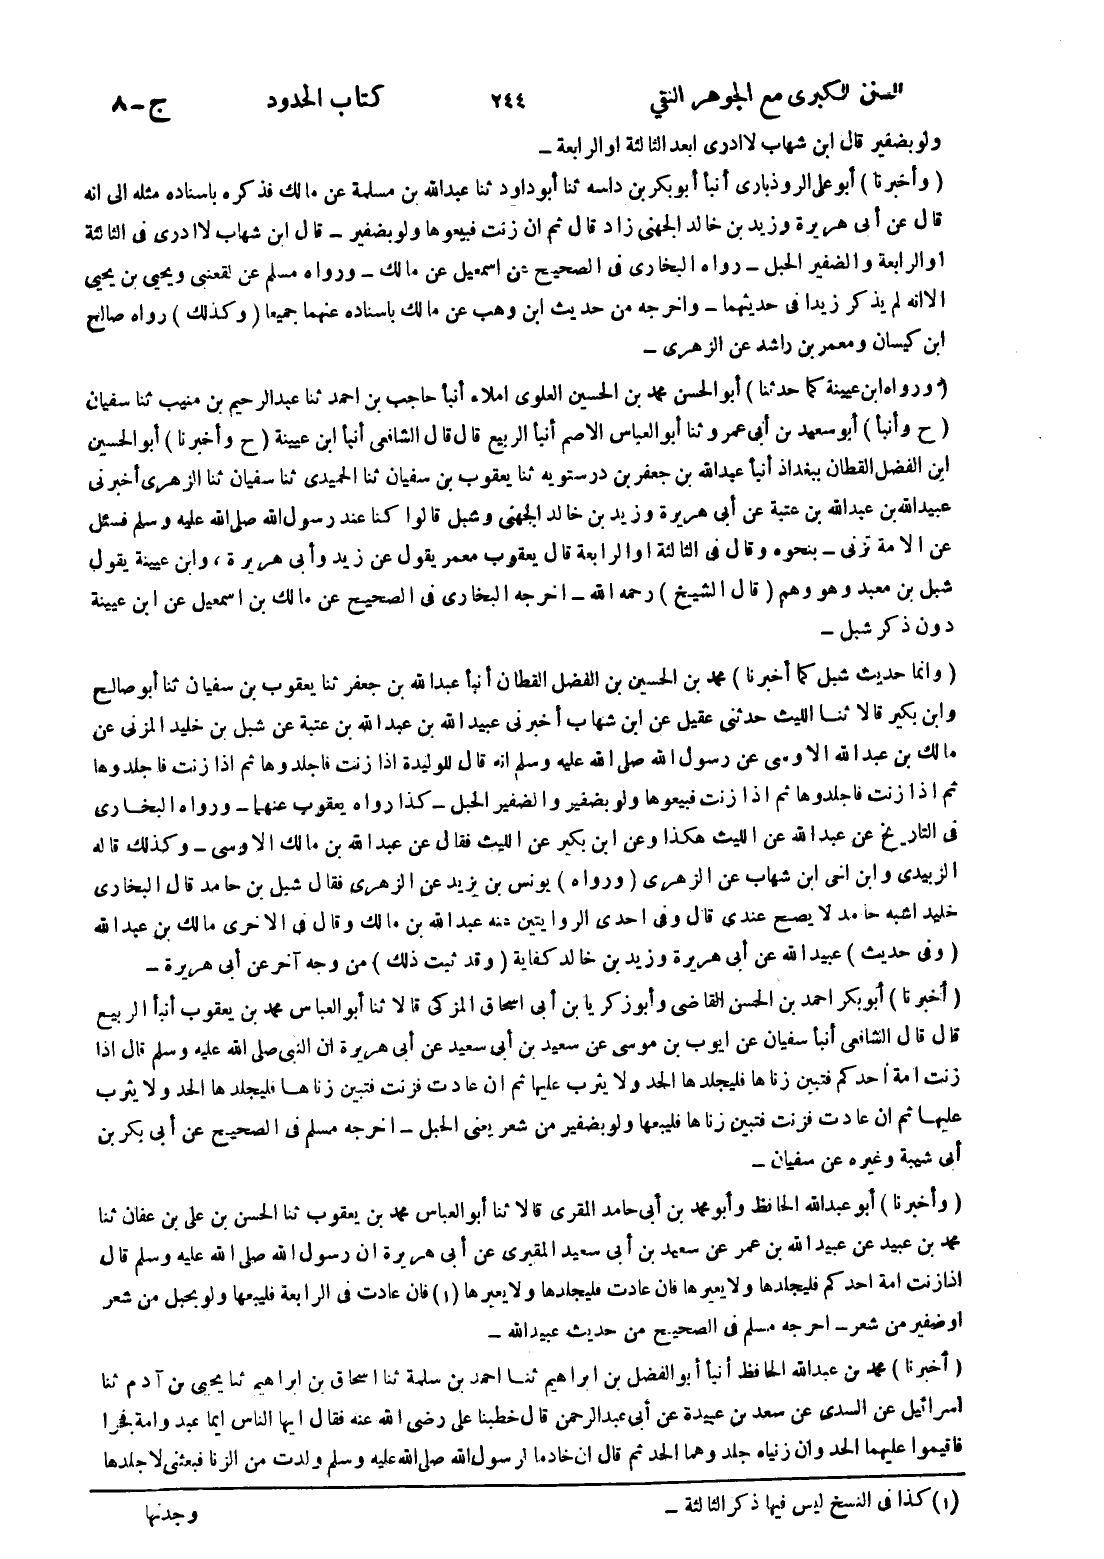 السنن الكبرى مع الجوهر النقي ٢٤٤ كتاب الحدود ج-٨
ولو بضفير قال ابن شهاب لا ادرى ابعد الثالثة او الرابعة –
( وأخبرنا ) أبو على الروذبارى أنبأ أبو بكر بن داسه ثنا أبو داود ثنا عبد الله بن مسلمة عن مالك فذكره باسناده مثله الى انه
قال عن أبى هريرة وزيد بن خالد الجهنى زاد قال ثم ان زنت فبيعوها ولو بضفير – قال ابن شهاب لا ادرى فى الثالثة
او الرابعة والضفير الحبل – رواه البخارى فى الصحيح عن اسمعيل عن مالك – ورواه مسلم عن لقعنبى ويحيى بن يحيى
الا انه لم يذكر زيدا فى حديثهما – واخرجه من حديث ابن وهب عن مالك باسناده عنهما جميعا ( وكذلك ) رواه صالح
ابن كيسان ومعمر بن راشد عن الزهرى –
( ورواه ابن عيينة كما حدثنا ) أبو الحسن محمد بن الحسين العلوى املاء أنبأ حاجب بن احمد ثنا عبد الرحيم بن منيب ثنا سفيان
( ح وأنبأ ) أبو سعيد بن أبى عمرو ثنا أبو العباس الاصم أنبأ الربيع قال قال الشافعى أنبأ ابن عيينة ( ح وأخبرنا ) أبو الحسين
ابن الفضل القطان ببغداذ أنبأ عبد الله بن جعفر بن درستويه ثنا يعقوب بن سفيان ثنا الحميدى ثنا سفيان ثنا الزهرى أخبرنى
عبيد الله بن عبد الله بن عتبة عن أبى هريرة وزيد بن خالد الجهنى وشبل قالوا كنا عند رسول الله صلى الله عليه وسلم فسئل
عن الامة تزنى – بنحوه وقال فى الثالثة او الرابعة قال يعقوب معمر يقول عن زيد وأبى هريرة ، وابن عيينة يقول
شبل بن معبد وهو وهم ( قال الشيخ ) رحمه الله – اخرجه البخارى فى الصحيح عن مالك بن اسمعيل عن ابن عيينة
دون ذكر شبل –
( وانما حديث شبل كما أخبرنا ) محمد بن الحسين بن الفضل القطان أنبأ عبد الله بن جعفر ثنا يعقوب بن سفيان ثنا أبو صالح
وابن بكير قالا ثنا الليث حدثنى عقيل عن ابن شهاب أخبرنى عبيد الله بن عبد الله بن عتبة عن شبل بن خليد المزنى عن
مالك بن عبد الله الاوسى عن رسول الله صلى الله عليه وسلم انه قال للوليدة اذا زنت فاجلدوها ثم اذا زنت فاجلدوها
ثم اذا زنت فاجلدوها ثم اذا زنت فبيعوها ولو بضفير والضفير الحبل – كذا رواه يعقوب عنهما – ورواه البخارى
فى التاريخ عن عبد الله عن الليث هكذا وعن ابن بكير عن الليث فقال عن عبد الله بن مالك الاوسى – وكذلك قاله
الزبيدى وابن اخى ابن شهاب عن الزهرى ( ورواه ) يونس بن يزيد عن الزهرى فقال شبل بن حامد قال البخارى
خليد اشبه حامد لا يصح عندى قال وفى احدى الروايتين عنه عبد الله بن مالك وقال فى الاخرى مالك بن عبد الله
( وفى حديث ) عبيد الله عن أبى هريرة وزيد بن خالد كفاية ( وقد ثبت ذلك ) من وجه آخر عن أبى هريرة –
( أخبرنا ) أبو بكر احمد بن الحسن القاضى وأبو زكريا بن أبى اسحاق المزكى قالا ثنا أبو العباس محمد بن يعقوب أنبأ الربيع
قال قال الشافعى أنبأ سفيان عن ايوب بن موسى عن سعيد بن أبى سعيد عن أبى هريرة ان النبى صلى الله عليه وسلم قال اذا
زنت امة احدكم فتبين زناها فليجلدها الحد ولا يثرب عليها ثم ان عادت فزنت فتبين زناها فليجلدها الحد ولا يثرب
عليها ثم ان عادت فزنت فتبين زناها فليبعها ولو بضفير من شعر يعنى الحبل – اخرجه مسلم فى الصحيح عن أبى بكر بن
أبى شيبة وغيره عن سفيان –
( وأخبرنا ) أبو عبد الله الحافظ وأبو محمد بن أبى حامد المقرى قالا ثنا أبو العباس محمد بن يعقوب ثنا الحسن بن على بن عفان ثنا
محمد بن عبيد عن عبيد الله بن عمر عن سعيد بن أبى سعيد المقبرى عن أبى هريرة ان رسول الله صلى الله عليه وسلم قال
اذا زنت امة احدكم فليجلدها ولا يعيرها فان عادت فليجلدها ولا يعيرها (١) فان عادت فى الرابعة فليبعها ولو بحبل من شعر
او ضفير من شعر – اخرجه مسلم فى الصحيح من حديث عبيد الله –
( أخبرنا ) محمد بن عبد الله الحافظ أنبأ أبو الفضل بن ابراهيم ثنا احمد بن سلمة ثنا اسحاق بن ابراهيم ثنا يحيى بن آدم ثنا
اسرائيل عن السدى عن سعد بن عبيدة عن أبى عبد الرحمن قال خطبنا على رضى الله عنه فقال ايها الناس ايما عبد وامة فجرا
فاقيموا عليهما الحد وان زنياه جلد وهما الحد ثم قال ان خادما لرسول الله صلى الله عليه وسلم ولدت من الزنا فبعثنى لاجلدها
(١) كذا فى النسخ ليس فيها ذكر الثالثة –
وجدتها